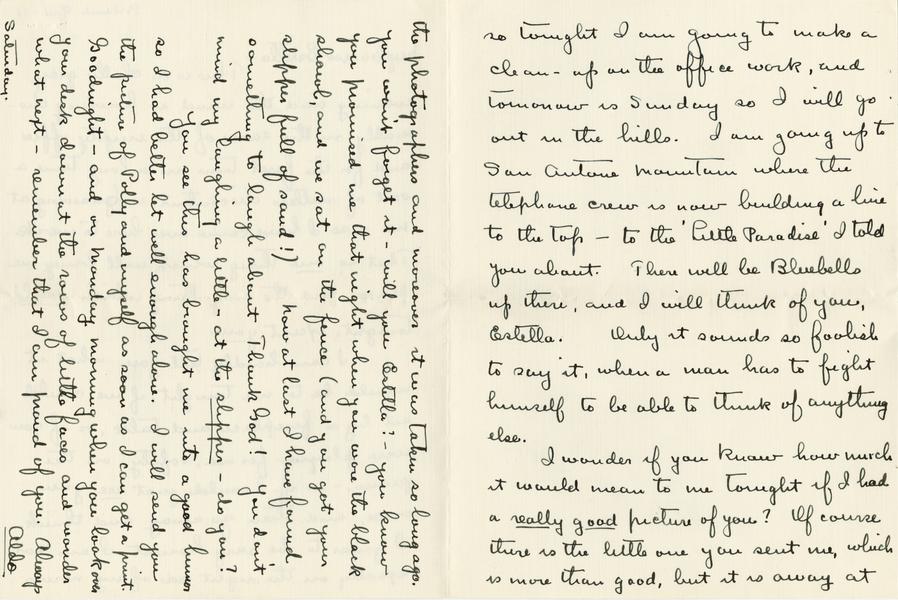 so tonight I am going to make a
clean-up on the office work, and
tomorrow is Sunday so I will go
out in the hills. I am going up to
San Antone mountain where the
telephone crew is now building a line
to the top – to the 'Little Paradise' I told
you about. There will be Bluebells
up there, and I will think of you,
Estella. Only it sounds so foolish
to say it, when a man has to fight
himself to be able to think of anything
else.
I wonder if you know how much
it would mean to me tonight if I had
a really good picture of you? Of course
there is the little one you sent me, which
is more than good, but it is away at
the photographers and moreover it was taken so long ago.
you wont forget it – will you Estella? – you know
you promised me, that night when you wore the black
shawl, and we sat on the fence (and you got your
slipper full of sand!) now at last I have found
something to laugh about Thank God! You don't
mind my laughing a little – at the slipper – do you?
You see this has brought me into a good humor
so I had better let well enough alone. I will send you
the picture of Polly and myself as soon as I can get a print.
Goodnight – and on Monday morning when you look on
your desk down at the rows of little faces and wonder
what next – remember that I am proud of you. Always
Aldo
Saturday.